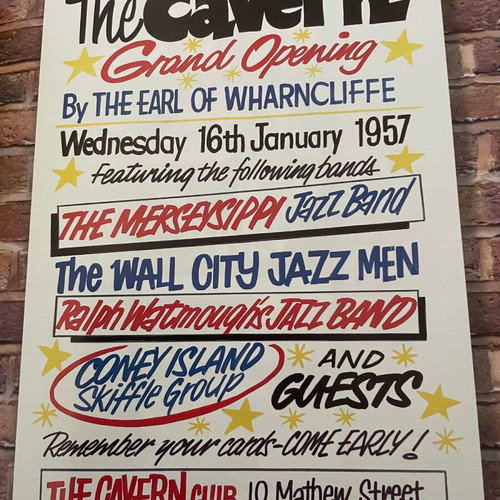 The Cavern
Grand Opening
By THE EARL OF WHARNCLIFFE
Wednesday 16th January 1957
Featuring the following bands
THE MERSEYSIPPI Jazz Band
The WALL CITY JAZZ MEN
Ralph Watmough's JAZZ BAND
CONEY ISLAND
Skiffle Group
AND
GUESTS
Remember your cards-COME EARLY!
THE CAVERN CLUB 10 Mathew Street